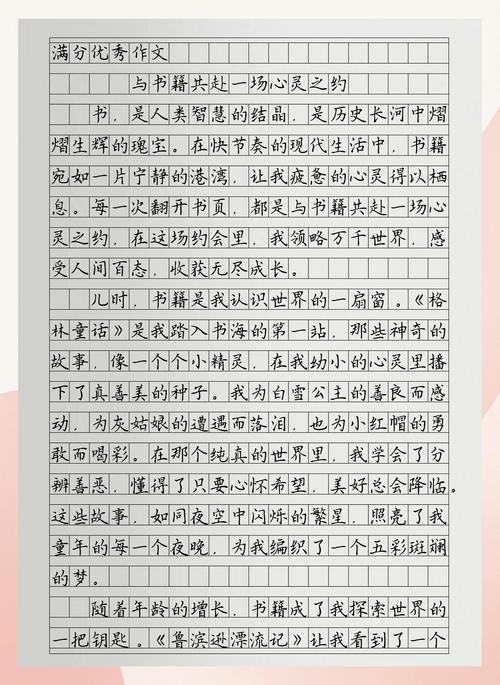 满分优秀作文
与书籍共赴一场心灵之约
书，是人类智慧的结晶，是历史长河中熠
熠生辉的瑰宝。在快节奏的现代生活中，书籍
宛如一片宁静的港湾，让我疲惫的心灵得以栖
息。每一次翻开书页，都是与书籍共赴一场心
灵之约，在这场约会里，我领略万千世界，感
受人间百态，收获无尽成长。
儿时，书籍是我认识世界的一扇窗。《格
林童话》是我踏入书海的第一站，那些神奇的
故事，像一个个小精灵，在我幼小的心灵里播
下了真善美的种子。我为白雪公主的善良而感
动，为灰姑娘的遭遇而落泪，也为小红帽的勇
敢而喝彩。在那个纯真的世界里，我学会了分
辨善恶，懂得了只要心怀希望，美好总会降临。
这些故事，如同夜空中闪烁的繁星，照亮了我
童年的每一个夜晚，为我编织了一个五彩斑斓
的梦。
随着年龄的增长，书籍成了我探索世界的
一把钥匙。《鲁滨逊漂流记》让我看到了一个